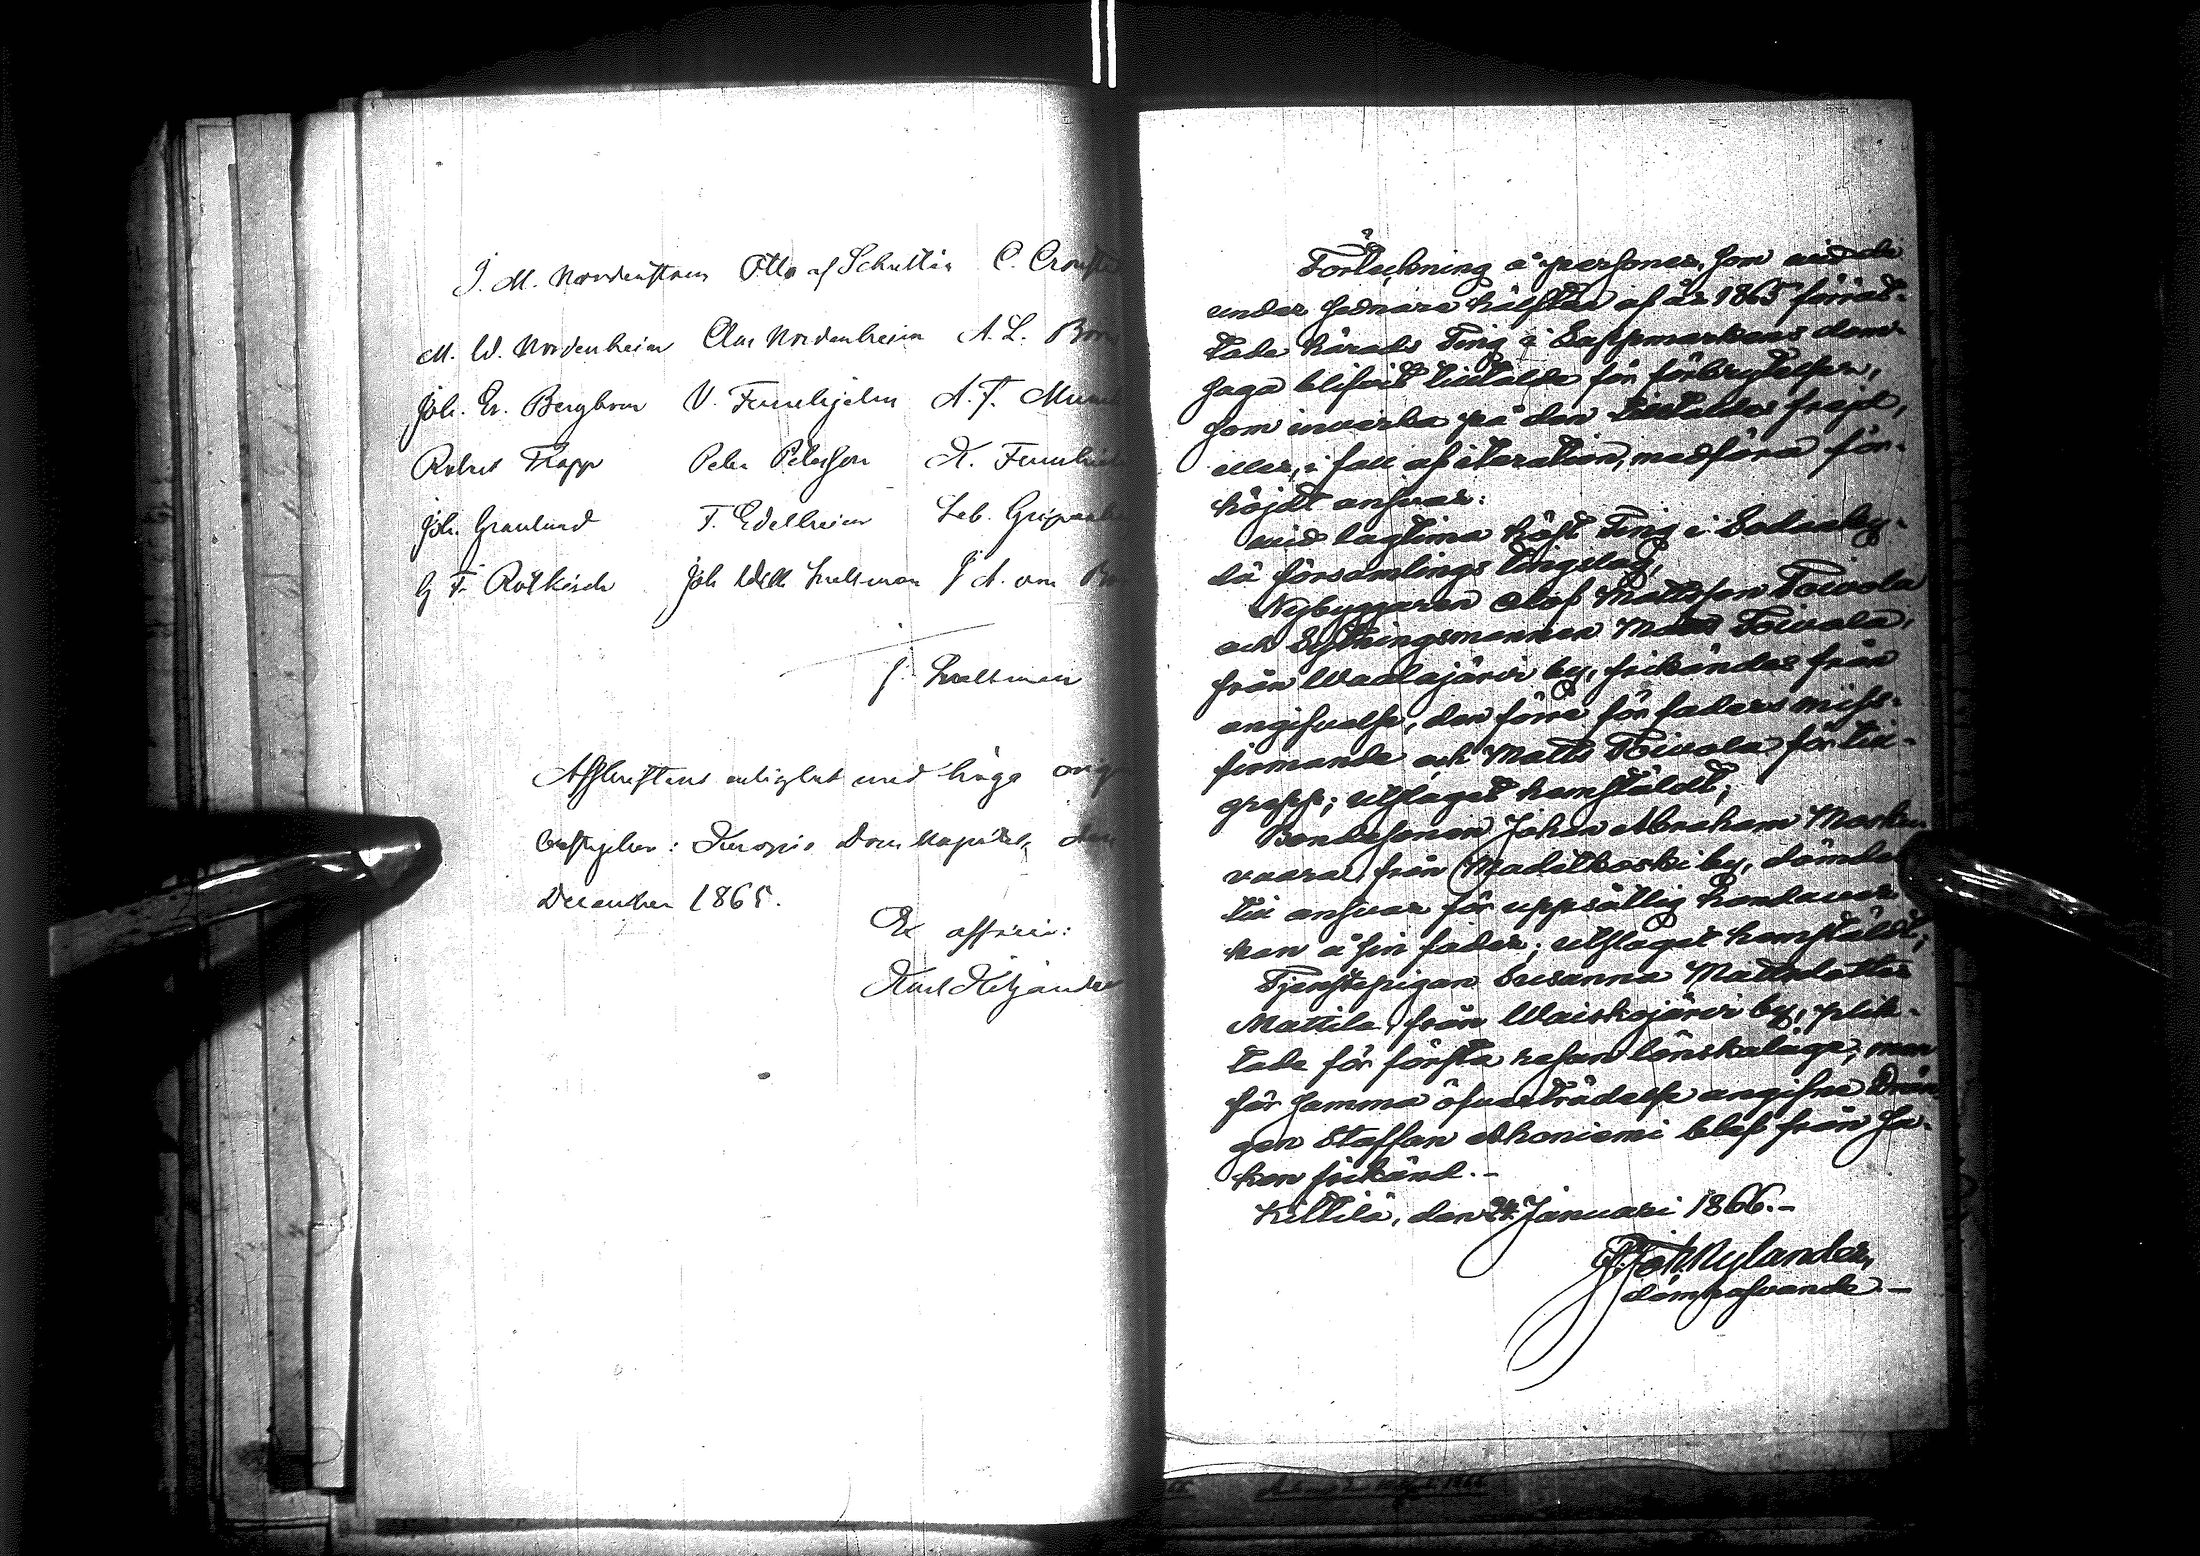 J. M. Nordenstam Otto af Schultén C. Cronst
M. W. Nordenheim Clas Nordenheim A. L. Born
Joh. Er. Bergbom V. Furuhjelm A. F. Munck
Robert Trapp Peter Peterson K. Furuhjelm
Joh. Granlund F. Edelheim Seb. Gripenberg
G. F. Rotkirch Joh Wilh Snellman J A von Born
J. Snellman
Afskriftens enlighet med höga
betygar: Kuopio Domkapitel, den
December 1865.
Ex officio:
Karl Kiljander
Förteckning å personer, som vid de
under sednare hälften af år 1865 förrät-
tade härads Ting i Lappmarkens dom-
saga blifvit tilltalde för förbrytelser,
som inverka på den tilltalades frejd,
eller, i fall af iteration, medföra för-
höjdt ansvar:
vid lagtima höst Ting i Sodanky-
lä församlings tingslag,
Nybyggaren Olof Mattsson Toivola
och Sythingsmannen Matts Toivola,
från Waalajärvi by, frikändes från
angifvelse, den förre för faders miss-
firmande och Matts Toivola för till-
grepp; utslaget hemstäldt;
Bondesonen Johan Abraham Morken
vaara, från Madetkoski by, dömdes
till ansvar för uppsåtlig handaver
kan å sin fader; utslaget hemstäldt;
Tjenstepigan Susanna Mattsdotter
Mattila, från Waiskojärvi by, plik-
tade för första resan lönskaläge; men
för samma öfverträdelse angifne Drän
gen Staffan Ahoniemi blef från sa-
ken frikänd.-
Kittilä, den 24 Januari 1866.-
Nylander,
domhafvande.-